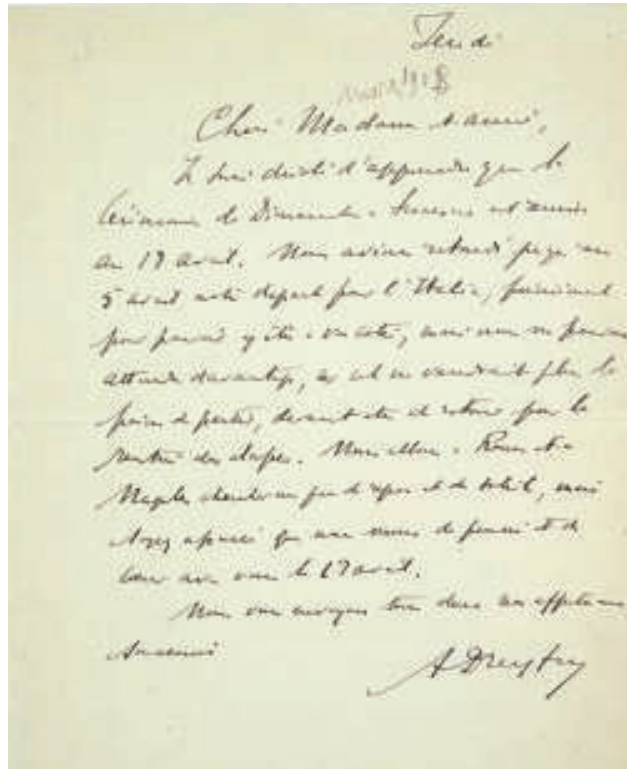 Jeudi
Mars 1908
Chère Madame et amie,
Je suis désolé d'apprendre que la
cérémonie de Dimanche
au 17 avril. Nous avions retardé jusqu'au
5 avril notre départ pour l'Italie,
pour pouvoir y être assisté, mais nous ne pouvons
attendre davantage, car cela ne vaudrait plus la
peine de partir, devant être de retour pour la
rentrée des classes. Nous allons à Rome et à
Naples chercher un peu de repos et de soleil, mais
soyez que nous de pensée et de
cœur avec vous le 17 avril.
Nous vous envoyons tous deux nos affectueux
souvenirs
A Dreyfus